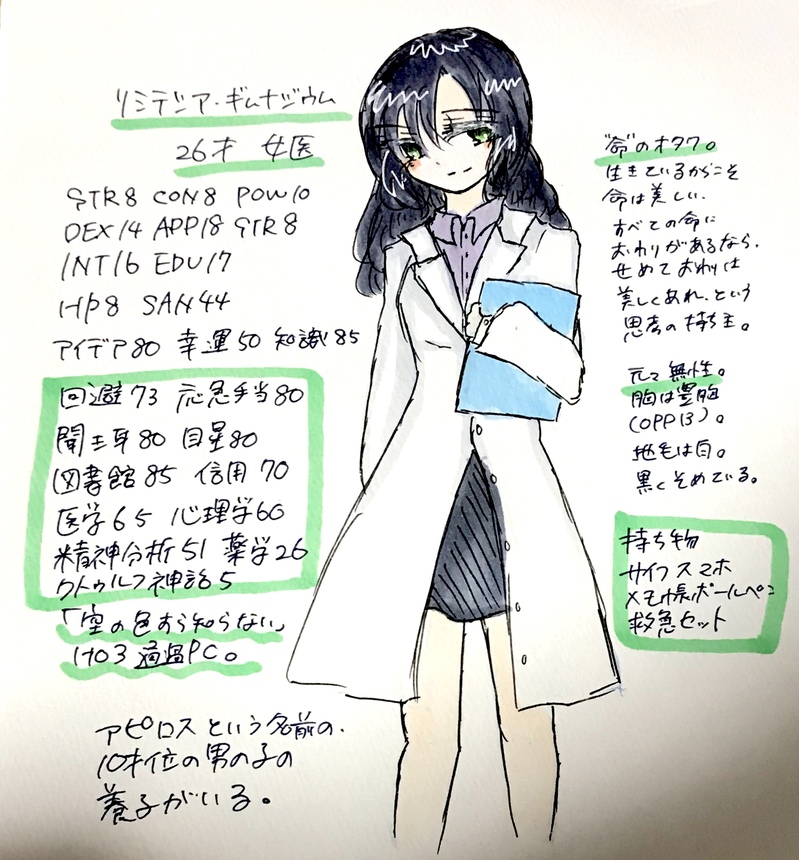 リミテシア・ギムナジウム
26才 女医
STR8 CON8 POW10
DEX14 APP18 STR8
INT16 EDU17
HP8 SAN44
アイデア80 幸運50 知識85
回避73 応急手当80
聞き耳80 目星80
図書館85 信用70
医学65 心理学60
精神分析51 薬学26
クトゥルフ神話5
「空の色すら知らない」
HO3 通過PC。
アピロスという名前の、
10才位の男の子の
養子がいる。
"命"のオタク。
生きているからこそ
命は美しい。
すべての命に
おわりがあるなら、
せめておわりは
美しくあれ、という
思考の持ち主。
元々無性。
胸は豊胸
(OPP13)。
地毛は白。
黒くそめている。
持ち物
サイフ スマホ
メモ帳 ボールペン
救急セット